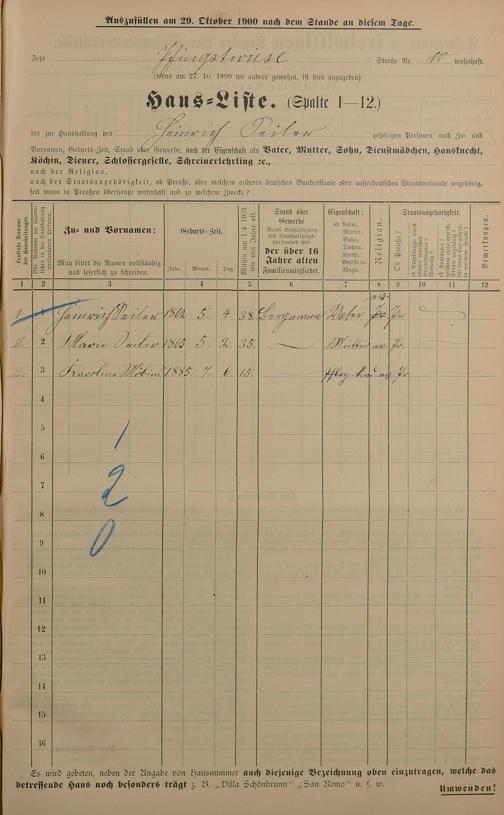 Auszufüllen am 29. Oktober 1900 nach dem Stande an diesem Tage.
Jetzt Pfingstwiese Straße Nr. 10 wohnhaft.
(wenn am 27. 10. 1899 wo anders gewohnt, ist dies anzugeben)
Haus-Liste. (Spalte 1—12.)
der zur Haushaltung des Heinrich Seiler gehörigen Personen nach Zu- und
Vornamen, Geburts-Zeit, Stand oder Gewerbe, nach der Eigenschaft als Vater, Mutter, Sohn, Dienstmädchen, Hausknecht,
Köchin, Diener, Schlossergeselle, Schreinerlehrling ꝛc.,
nach der Religion,
nach der Staatsangehörigkeit, ob Preuße, oder welchem anderen deutschen Bundesstaate oder außerdeutschen Staatsverbande angehörig,
seit wann in Preußen überhaupt wohnhaft und zu welchem Zwecke?
Zu- und Vornamen:
Man bittet die Namen vollständig und leserlich zu schreiben.
Geburts-Zeit.
Jahr. Monat. Tag.
Mithin am 1./4. 1901 wie viel Jahre alt.
Stand oder Gewerbe
der über 16 Jahre alten Familienmitglieder.
Eigenschaft:
ob Vater, Mutter, Sohn, Tochter, Knecht, Magd, Geselle ꝛc.
Religion.
Staatsangehörigkeit.
Ob Preuße?
Bemerkungen.
1 2 3 4 5 6 7 8 9 10 11 12
I 1 Heinrich Seiler 1862 5 4 38 Bergmann Vater Pr
II 2 Marie Seiler 1865 5 2 35 — Mutter ev Pr.
III 3 Karoline 1885 7 6 15 ev Pr.
4
5
1
6
7
2
8
9
0
10
11
12
13
14
15
16
Es wird gebeten, neben der Angabe von Hausnummer auch diejenige Bezeichnung oben einzutragen, welche das
betreffende Haus noch besonders trägt z. B. „Villa Schönbrunn" „San Remo" u. s. w.
Umwenden!